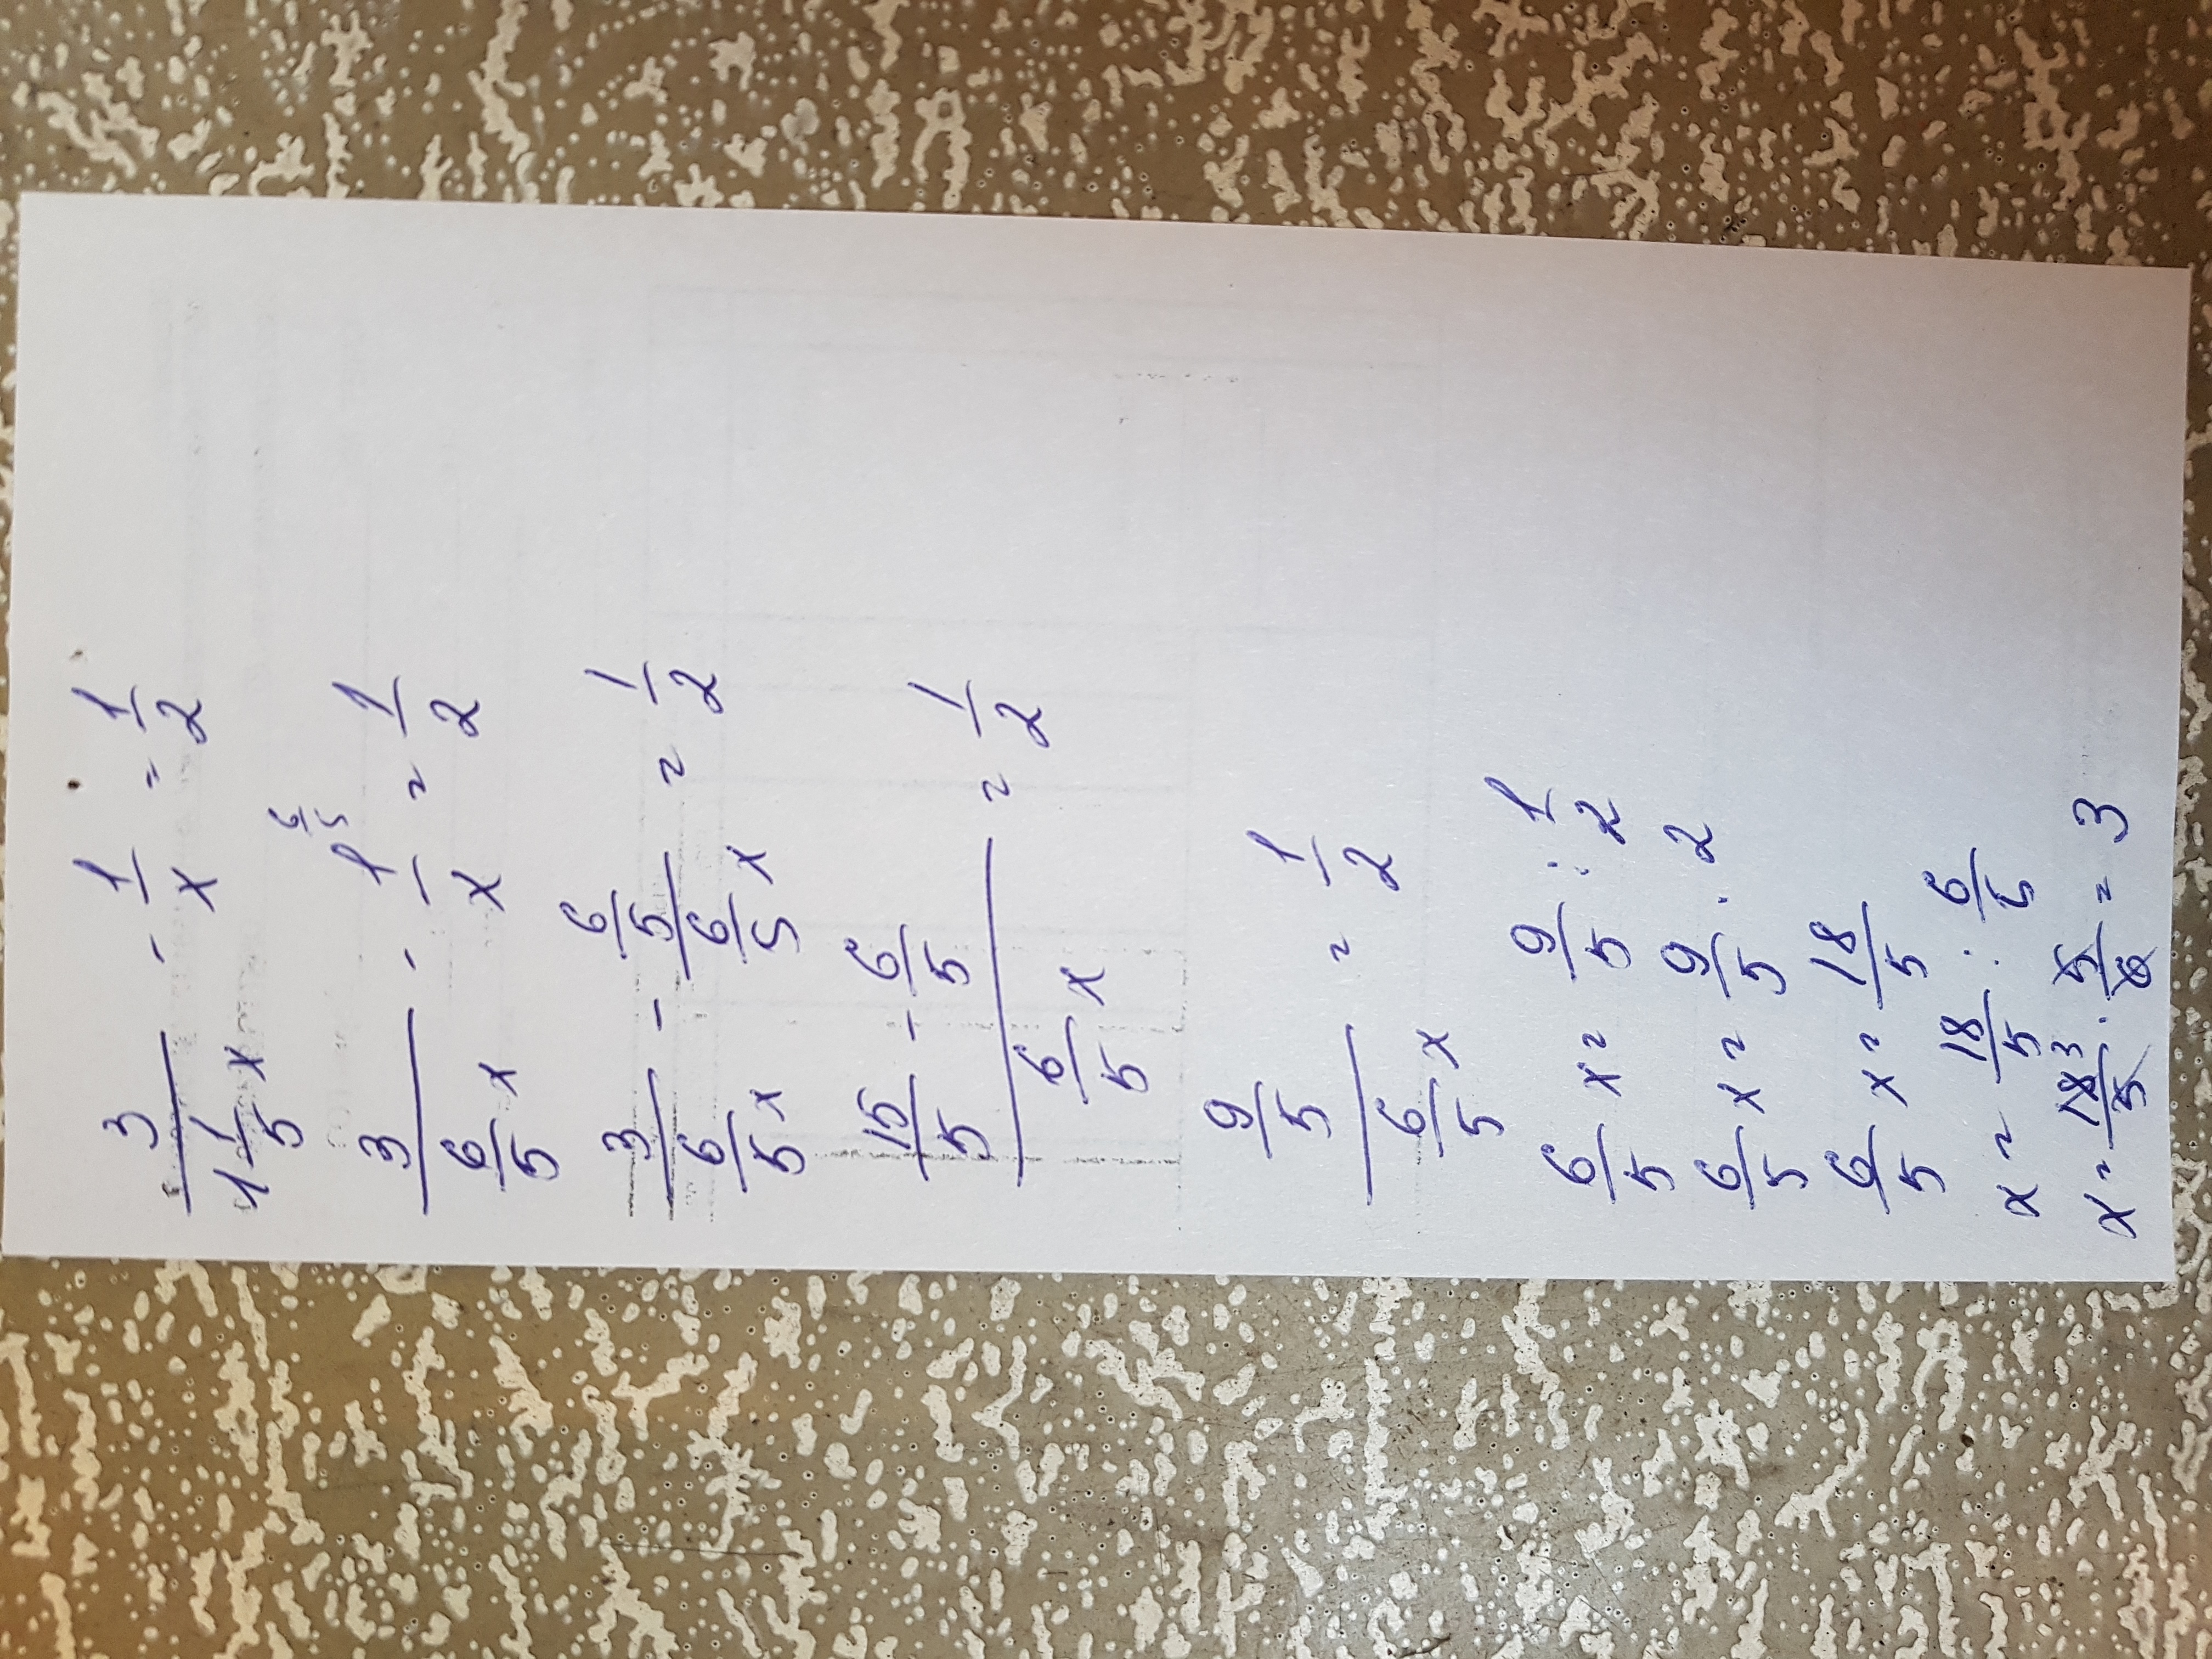 3/(1 1/5 x) - 1/x = 1/2
3/(6/5 x) - 1/x = 1/2
3/(6/5 x) - (6/5)/(6/5 x) = 1/2
(15/5 - 6/5)/(6/5 x) = 1/2
(9/5)/(6/5 x) = 1/2
6/5 x = 9/5 : 1/2
6/5 x = 9/5 · 2
6/5 x = 18/5
x = 18/5 : 6/5
x = 18 3/5 · 5/6 = 3